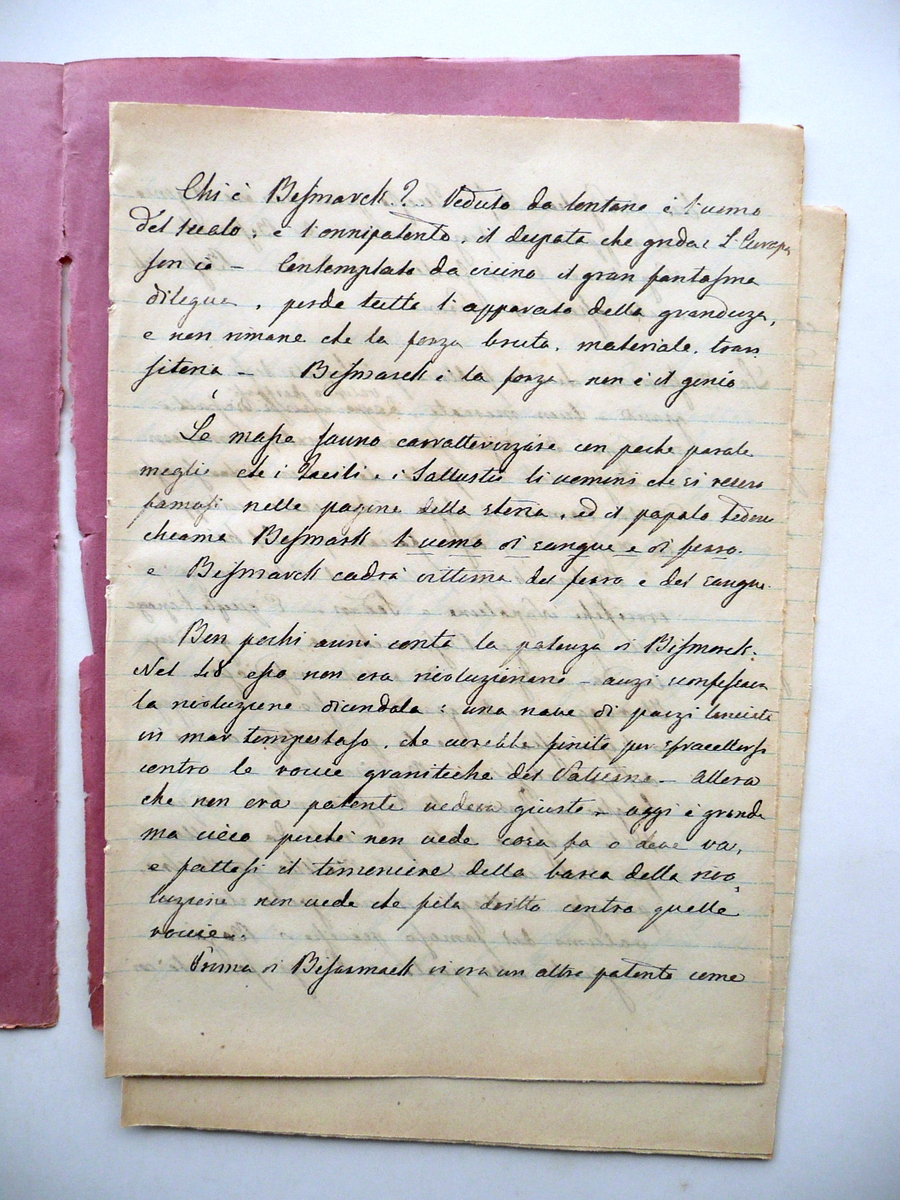 Chi è Bismarck? Veduto da lontano è l'uomo
del secolo, è l'onnipotente, il despota che grida: L'Europa
son io — Contemplato da vicino il gran fantasma
dilegua, perde tutto l'apparato della grandezza,
e non rimane che la forza bruta, materiale, tran
sitoria — Bismarck è la forza – non è il genio
Le masse sanno carratterizzare con poche parole
meglio che i Taciti, i Sallusti li uomini che si resero
famosi nelle pagine della storia, ed il popolo tedesco
chiama Bismark l'uomo di sangue e di ferro.
e Bismarck cadrà vittima del ferro e del sangue
Ben pochi anni conta la potenza di Bismarck.
Nel 48 esso non era rivoluzionario – anzi confessava
la rivoluzione dicendola: una nave di pazzi lanciata
in mar tempestoso, che avrebbe finito per sfracellarsi
contro le roccie granitiche del Vaticano – Allora
che non era potente vedeva giusto – oggi è grande
ma cieco perchè non vede cosa fa o dove va,
e fattosi il timoniere della barca della rivo
luzione non vede che fila diritto contro quelle
roccie.
Prima di Bissmack vi era un altro potente come